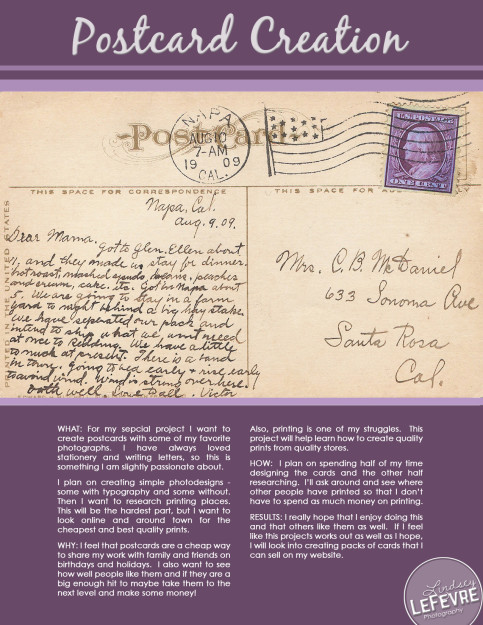 Postcard Creation
Post Card
NAPA
AUG 10
7-AM
19 09
CAL.
ONE CENT
THIS SPACE FOR CORRESPONDENCE
THIS SPACE FOR
PRINTED IN THE UNITED STATES
Napa, Cal.
Aug. 9. 09.
Dear Mama.
Got to Glen. Ellen about
11, and they made us stay for dinner.
hot roast, mashed spuds, beans. peaches
and cream, cake. etc. Got in Napa about
5. We are going to stay in a farm
yard to night behind a big hay stake.
We have seperated our pack and
intend to ship what we wont need
at once to Redding. We have a little
to much at present. There is a band
in town. Going to bed early & rise early
to avoid wind. Wind is strong over here.
Both well. Love to all. Victor
Mrs. C. B. McDaniel
633 Sonoma Ave
Santa Rosa
Cal.
WHAT: For my sepcial project I want to
create postcards with some of my favorite
photographs. I have always loved
stationery and writing letters, so this is
something I am slightly passionate about.
I plan on creating simple photodesigns -
some with typography and some without.
Then I want to research printing places.
This will be the hardest part, but I want to
look online and around town for the
cheapest and best quality prints.
WHY: I feel that postcards are a cheap way
to share my work with family and friends on
birthdays and holidays. I also want to see
how well people like them and if they are a
big enough hit to maybe take them to the
next level and make some money!
Also, printing is one of my struggles. This
project will help learn how to create quality
prints from quality stores.
HOW: I plan on spending half of my time
designing the cards and the other half
researching. I'll ask around and see where
other people have printed so that I don't
have to spend as much money on printing.
RESULTS: I really hope that I enjoy doing this
and that others like them as well. If I feel
like this projects works out as well as I hope,
I will look into creating packs of cards that I
can sell on my website.
Lindsey
LEFEVRE
Photography